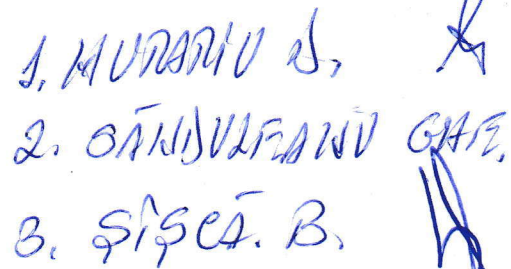 1. MURARIU D.
2. SĂNDULEANU GHE.
3. ȘÎȘCĂ. B.